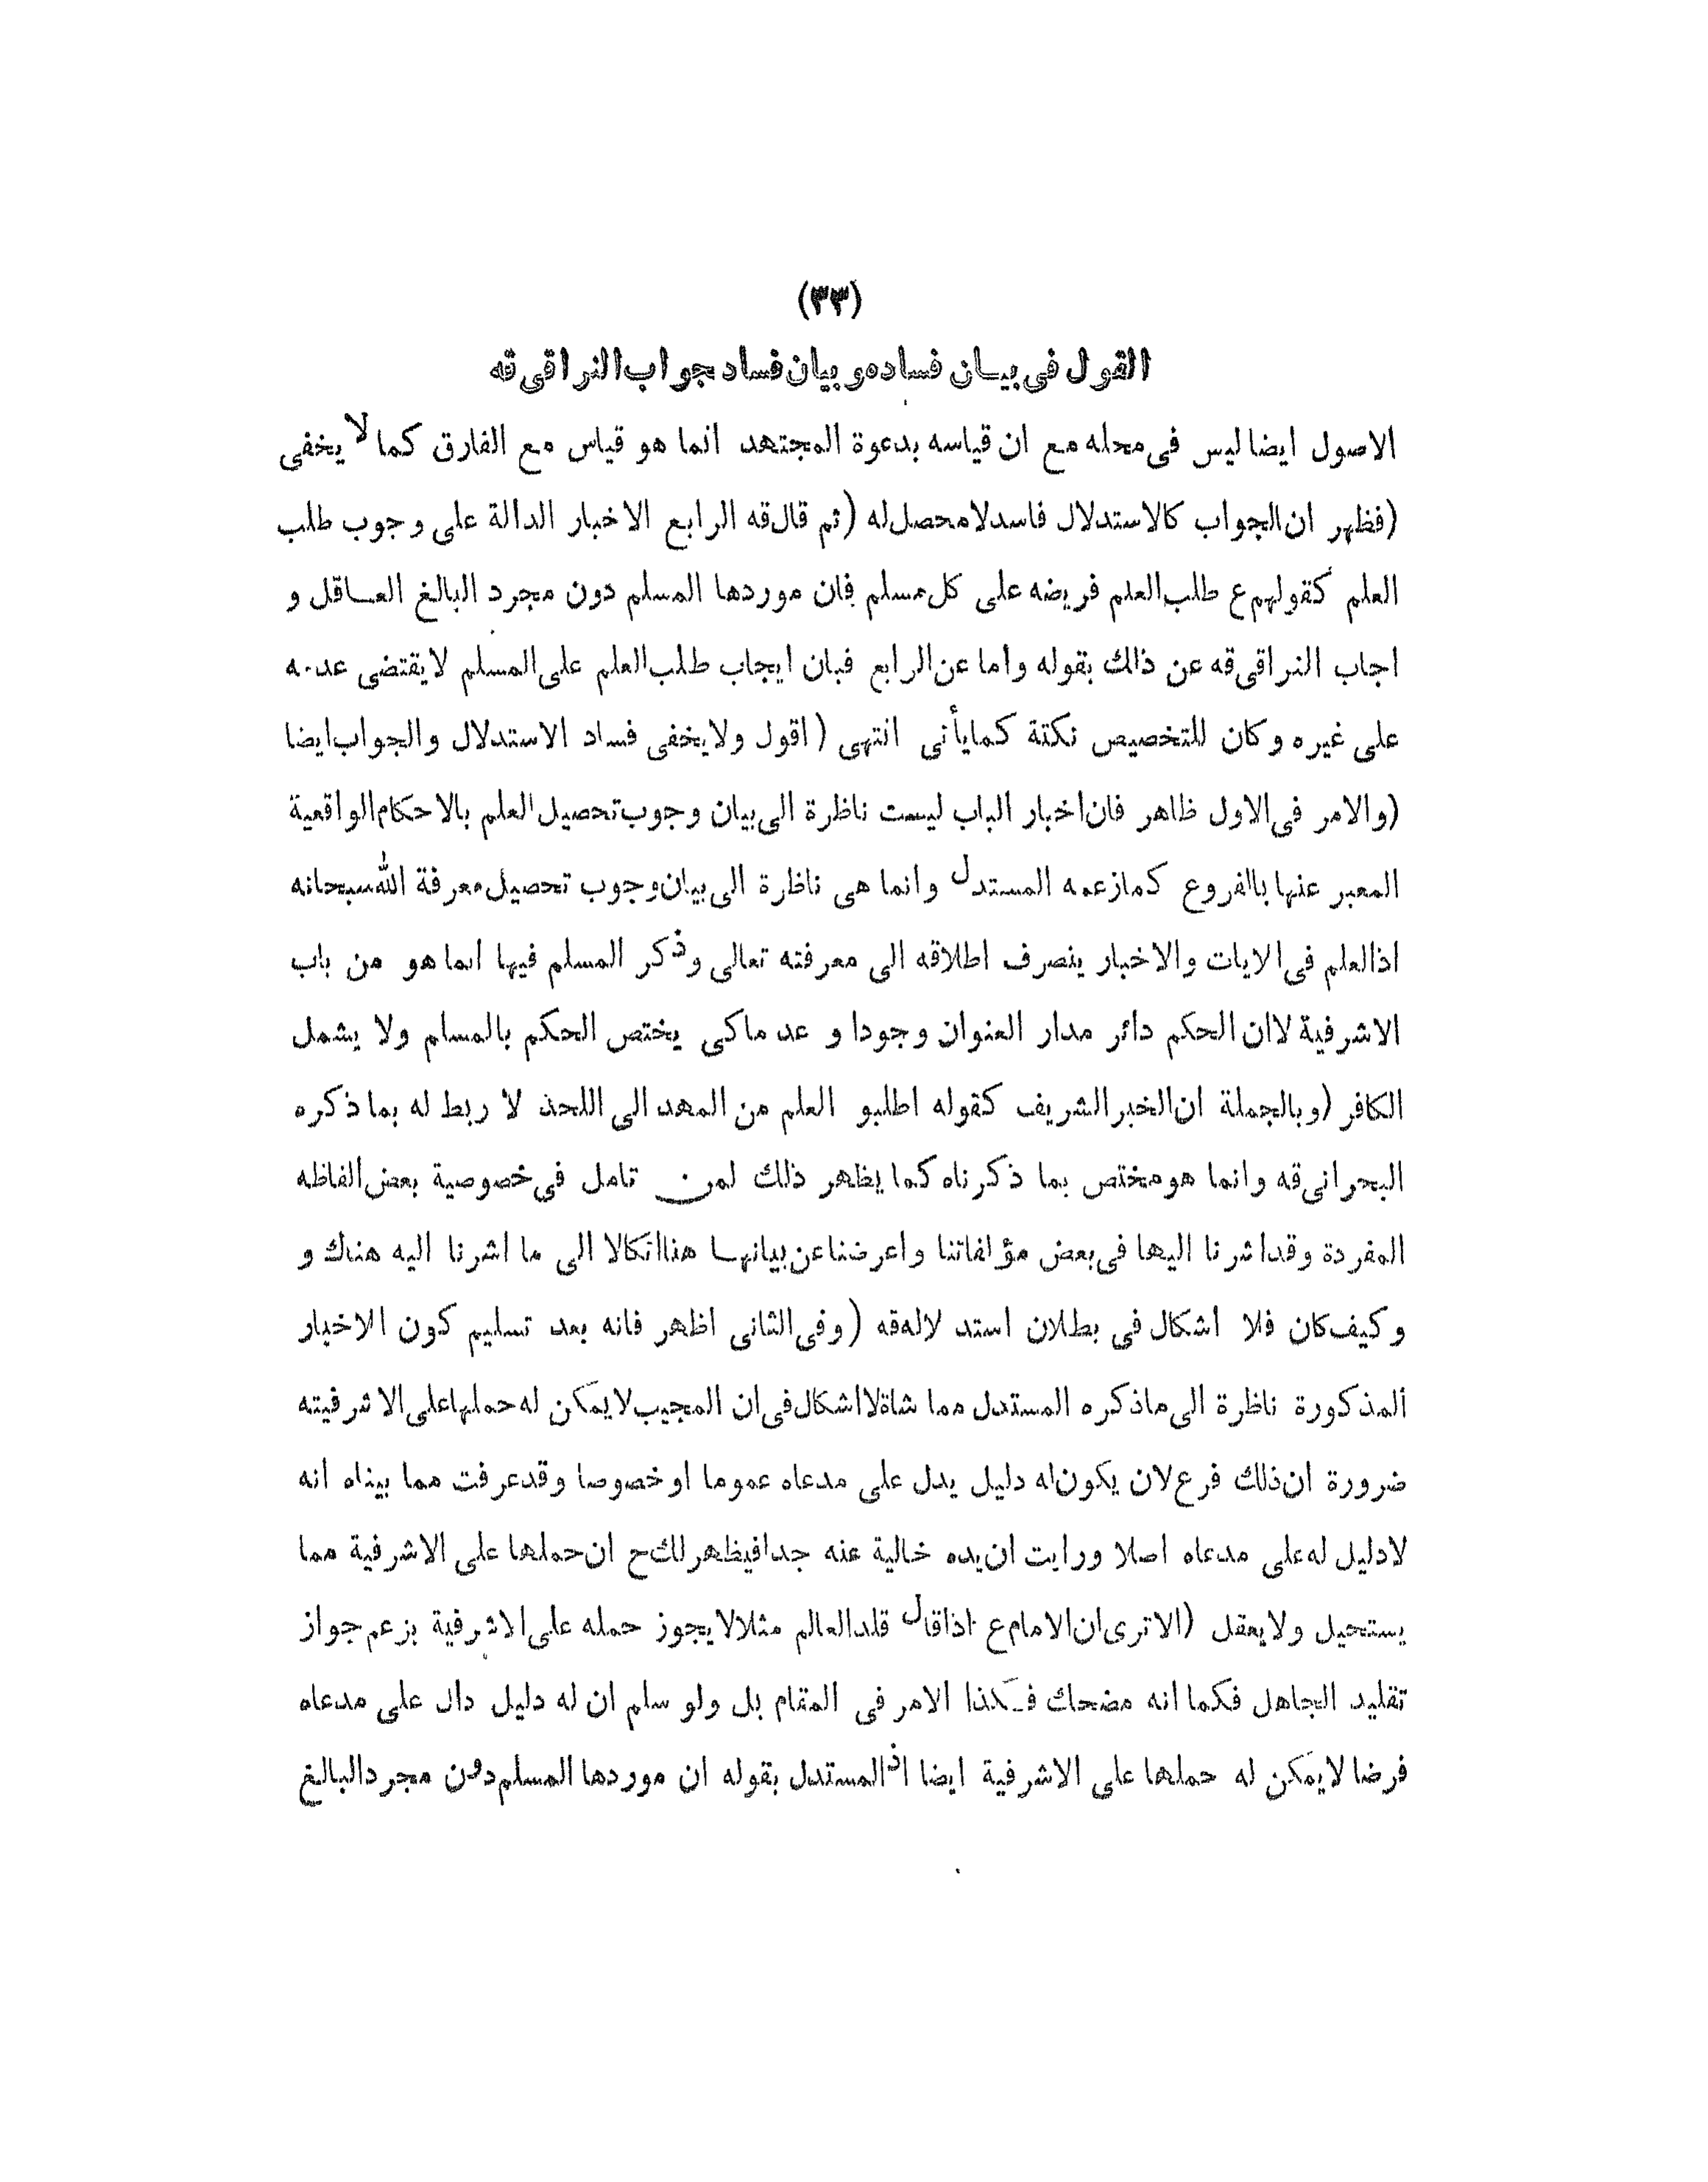 (٣٣)
القول فى بيان فساده و بيان فساد جواب النراقى قه
الاصول ايضا ليس فى محله مع ان قياسه بدعوة المجتهد انما هو قياس مع الفارق كما لا يخفى
(فظهر ان الجواب كالاستدلال فاسد لا محصل له (ثم قال قه الرابع الاخبار الدالة على وجوب طلب
العلم كقولهم ع طلب العلم فريضه على كل مسلم فان موردها المسلم دون مجرد البالغ العاقل و
اجاب النراقى قه عن ذالك بقوله واما عن الرابع فبان ايجاب طلب العلم على المسلم لا يقتضى عدمه
على غيره وكان للتخصيص نكتة كما يأتى انتهى (اقول ولا يخفى فساد الاستدلال والجواب ايضا
(والامر فى الاول ظاهر فان اخبار الباب ليست ناظرة الى بيان وجوب تحصيل العلم بالاحكام الواقعية
المعبر عنها بالفروع كما زعمه المستدل وانما هى ناظرة الى بيان وجوب تحصيل معرفة الله سبحانه
اذ العلم فى الايات والاخبار ينصرف اطلاقه الى معرفته تعالى وذكر المسلم فيها انما هو من باب
الاشرفية لا ان الحكم دائر مدار العنوان وجودا و عدما كى يختص الحكم بالمسلم ولا يشمل
الكافر (وبالجملة ان الخبر الشريف كقوله اطلبو العلم من المهد الى اللحد لا ربط له بما ذكره
البحرانى قه وانما هو مختص بما ذكرناه كما يظهر ذلك لمن تامل فى خصوصية بعض الفاظه
المفردة وقد اشرنا اليها فى بعض مؤلفاتنا واعرضنا عن بيانها هنا اتكالا الى ما اشرنا اليه هناك و
وكيف كان فلا اشكال فى بطلان استدلاله قه (وفى الثانى اظهر فانه بعد تسليم كون الاخبار
المذكورة ناظرة الى ماذكره المستدل مماشاة لا اشكال فى ان المجيب لا يمكن له حملها على الاشرفيته
ضرورة ان ذلك فرع لان يكون له دليل يدل على مدعاه عموما او خصوصا وقد عرفت مما بيناه انه
لا دليل له على مدعاه اصلا ورايت ان يده خالية عنه جدا فيظهر لك ح ان حملها على الاشرفية مما
يستحيل ولا يعقل (الا ترى ان الامام ع اذا قال قلد العالم مثلا لا يجوز حمله على الاشرفية بزعم جواز
تقليد الجاهل فكما انه مضحك فكذا الامر فى المقام بل ولو سلم ان له دليل دال على مدعاه
فرضا لا يمكن له حملها على الاشرفية ايضا اذ المستدل بقوله ان موردها المسلم دون مجرد البالغ